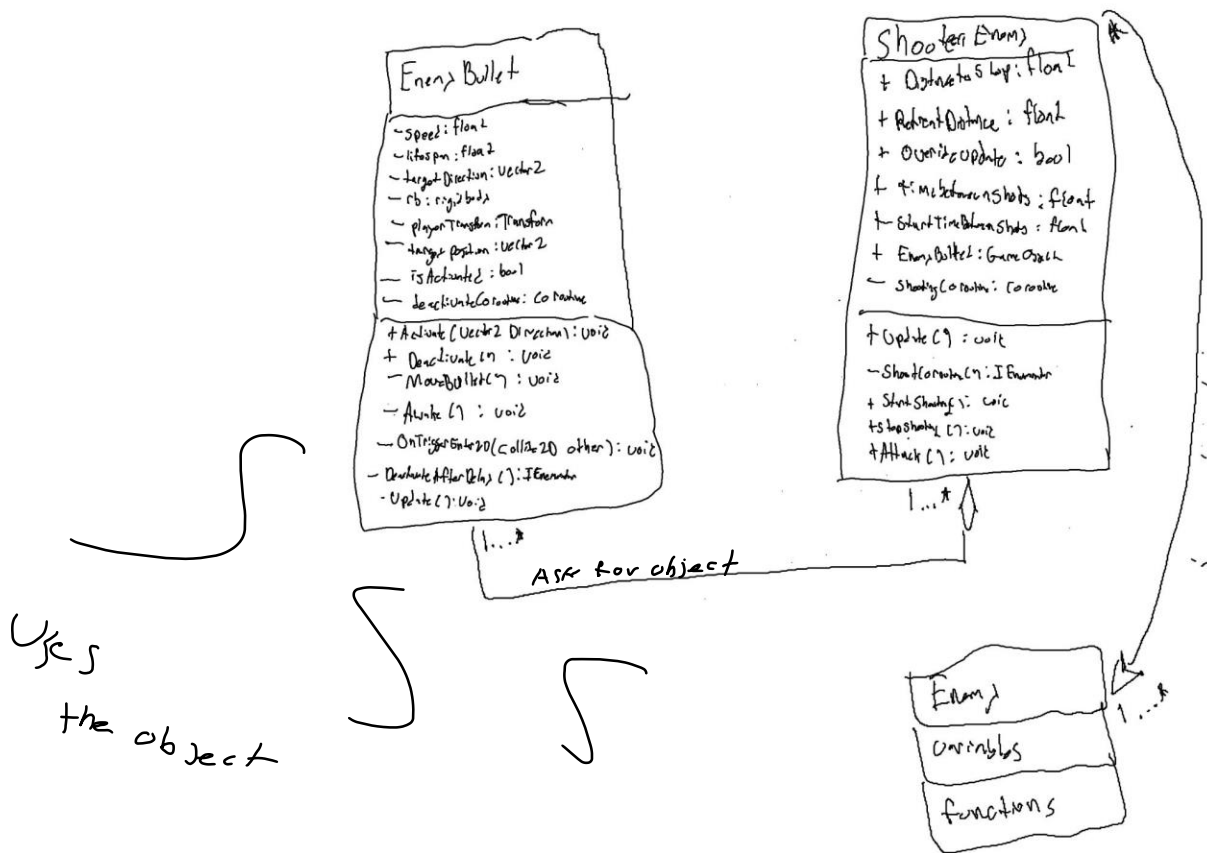 Enemy Bullet
- speed: float
- lifespan: float
- targetDirection: Vector2
- rb: rigidbody
- playerTransform: Transform
- target position: Vector2
- isActivated: bool
- deactivateCoroutine: Coroutine
+ Activate (Vector2 Direction): void
+ Deactivate(): void
- MoveBullet(): void
- Awake(): void
- OnTriggerEnter2D(Collider2D other): void
- DeactivateAfterDelay(): IEnumerator
- Update(): void
1...*
Shooter Enemy
*
+ DistancetoStop: float
+ RetreatDistance: float
+ OverideUpdate: bool
+ timeBetweenShots: float
+ StartTimeBetweenShots: float
+ EnemyBullet: GameObject
- ShootingCoroutine: Coroutine
+ Update(): void
- ShootCoroutine(): IEnumerator
+ StartShooting(): void
+ StopShooting(): void
+ Attack(): void
1...*
Ask for object
Uses
the object
Enemy
1...*
variables
functions